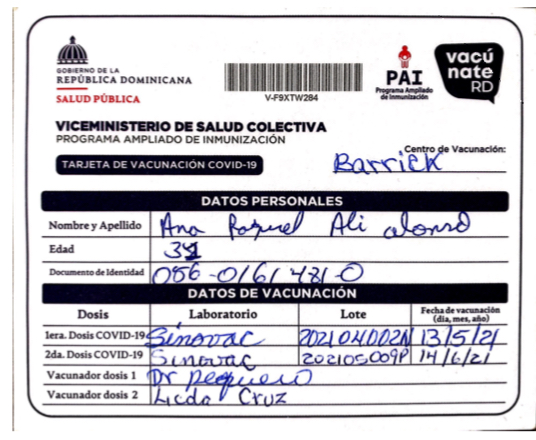 GOBIERNO DE LA
REPÚBLICA DOMINICANA
SALUD PÚBLICA
V-F9XTW284
PAI
Programa Ampliado
de Inmunización
vacú
nate
RD
VICEMINISTERIO DE SALUD COLECTIVA
PROGRAMA AMPLIADO DE INMUNIZACIÓN
TARJETA DE VACUNACIÓN COVID-19
Centro de Vacunación:
Barrick
DATOS PERSONALES
Nombre y Apellido Ana Raquel Ali alonso
Edad
Documento de Identidad 086-0161481-0
DATOS DE VACUNACIÓN
Dosis Laboratorio Lote Fecha de vacunación
(día, mes, año)
1era. Dosis COVID-19 Sinovac 202104002N 13/5/21
2da. Dosis COVID-19 Sinovac 202105009P 14/6/21
Vacunador dosis 1 Dr peguero
Vacunador dosis 2 Licda Cruz